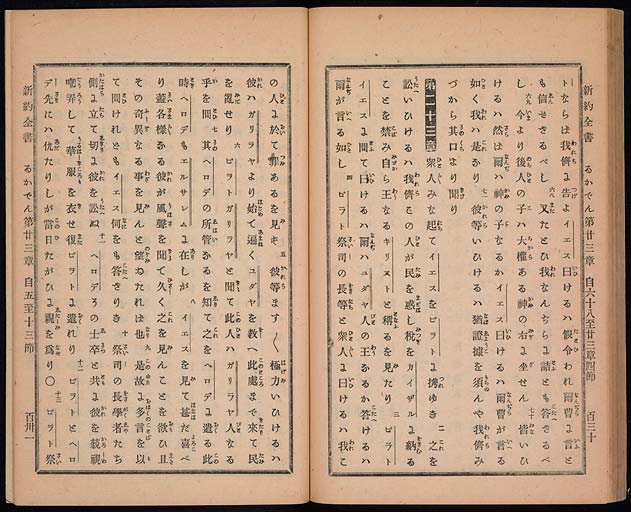 新約全書 るかでん第廿三章 自六十八至廿三章四節 百三十
トならば我儕に告よイエス曰けるハ假令われ爾曹に言と
も信ぜざるべし 又たとひ我なんぢらに詰とも答ざるべ
し 今より後人の子ハ大權ある神の右に坐せん 皆いひ
けるハ然ば爾ハ神の子なるかイエス曰けるハ爾曹が言る
如く我ハ是なり 彼等いひけるハ猶證據を須んや我儕み
づから其口より聞り
第二十三章 衆人みな起てイエスをピラトに携ゆき 二 之を
訟いひけるハ我儕この人が民を惑し税をカイザルに納る
ことを禁み自ら王なるキリストと稱るを見たり 三 ピラト
イエスに問て曰けるハ爾ハユダヤ人の王なるか答けるハ
爾が言る如し 四 ピラト祭司の長等と衆人に曰けるハ我こ
の人に於て罪あるを見ず 五 彼等ます〱極力いひけるハ
彼ハガリラヤより始て遍くユダヤを教へ此處まで來て民
を亂せり 六 ピラトガリラヤと聞て此人ハガリラヤ人なる
乎を問 七 其ヘロデの所管なるを知て之をヘロデに遣る此
時ヘロデもエルサレムに在しが 八 イエスを見て甚だ喜べ
り蓋各樣なる彼が風聲を聞て久く之を見んことを欲ひ且
その奇異なる事を見んと望ゐたれば也 九 是故に多言を以
て問けれどもイエス何をも答ざりき 十 祭司の長學者たち
側に立て切に彼を訟ぬ 十一 ヘロデその士卒と共に彼を藐視
嘲弄して華服を衣せ復ピラトに遣れり 十二 ピラトとヘロ
デ先にハ仇たりしが當日たがひに親を爲り〇 十三 ピラト祭
新約全書 るかでん第廿三章 自五至十三節 百卅一